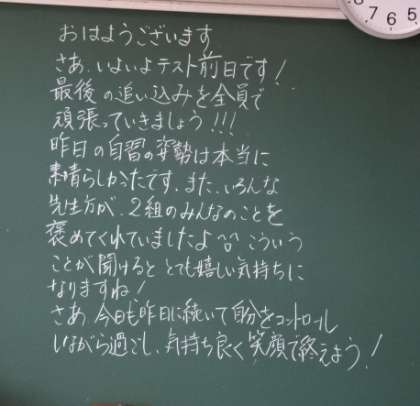 おはようございます
さあ、いよいよテスト前日です!
最後の追い込みを全員で
頑張っていきましょう!!!
昨日の自習の姿勢は本当に
素晴らしかったです。また、いろんな
先生方が、2組のみんなのことを
褒めてくれていましたよ^^ こういう
ことが聞けるととても嬉しい気持ちに
なりますね!
さあ、今日も昨日に続いて自分をコントロール
しながら過ごし、気持ち良く笑顔で終えよう!
7 6 5